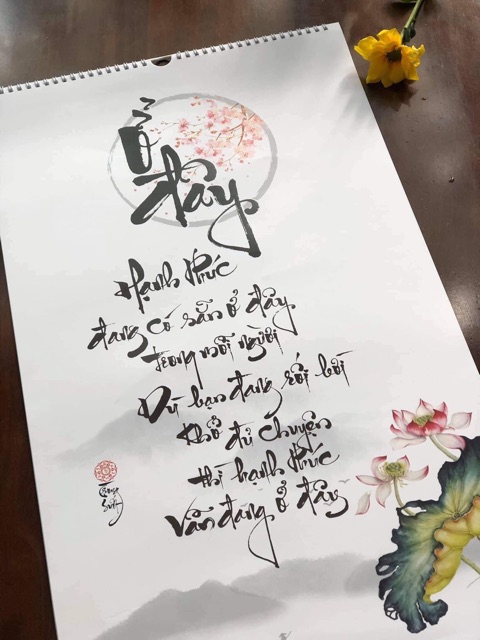 Ở
đây
Hạnh Phúc
đang có sẵn ở đây
trong mỗi người
Dù bạn đang rối bời
Khổ đủ chuyện
thì hạnh Phúc
Vẫn đang ở đây